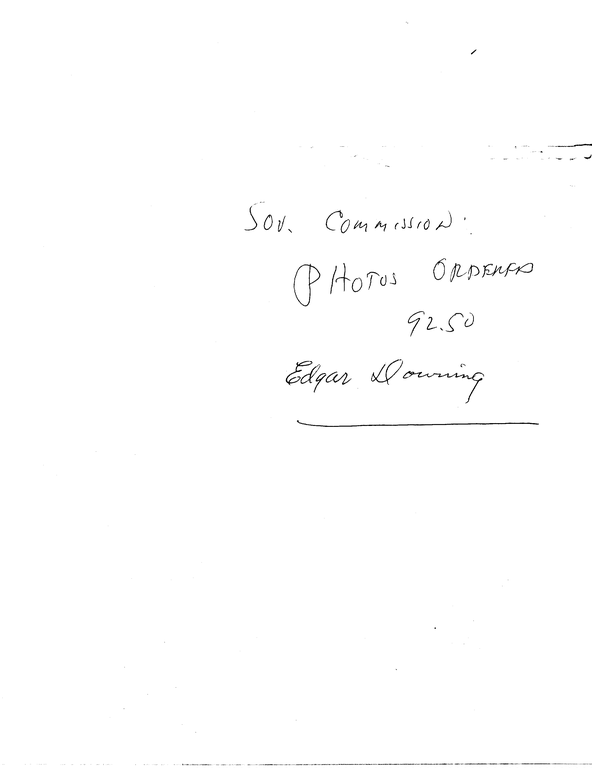 Sov. Commission:
Photos Ordered
92.50
Edgar Downing